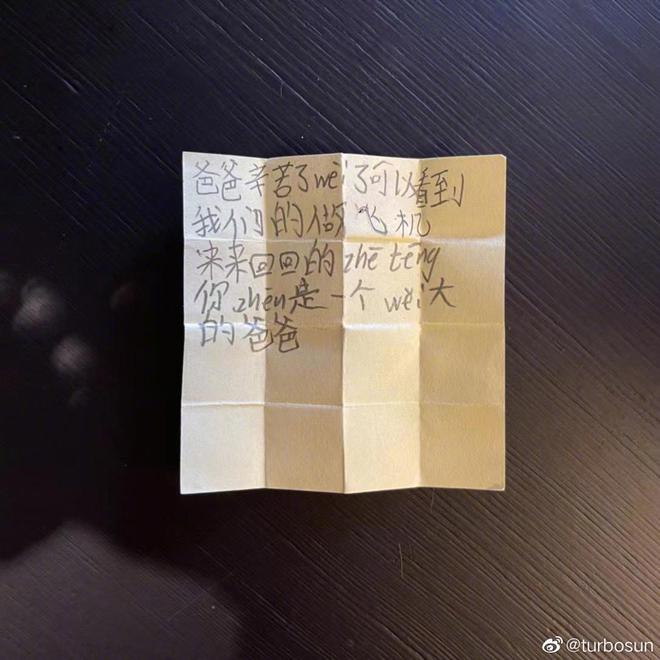 爸爸辛苦了wèi了可以看到
我们的做飞机
来来回回的zhē téng
你zhēn是一个wěi大
的爸爸
@turbosun